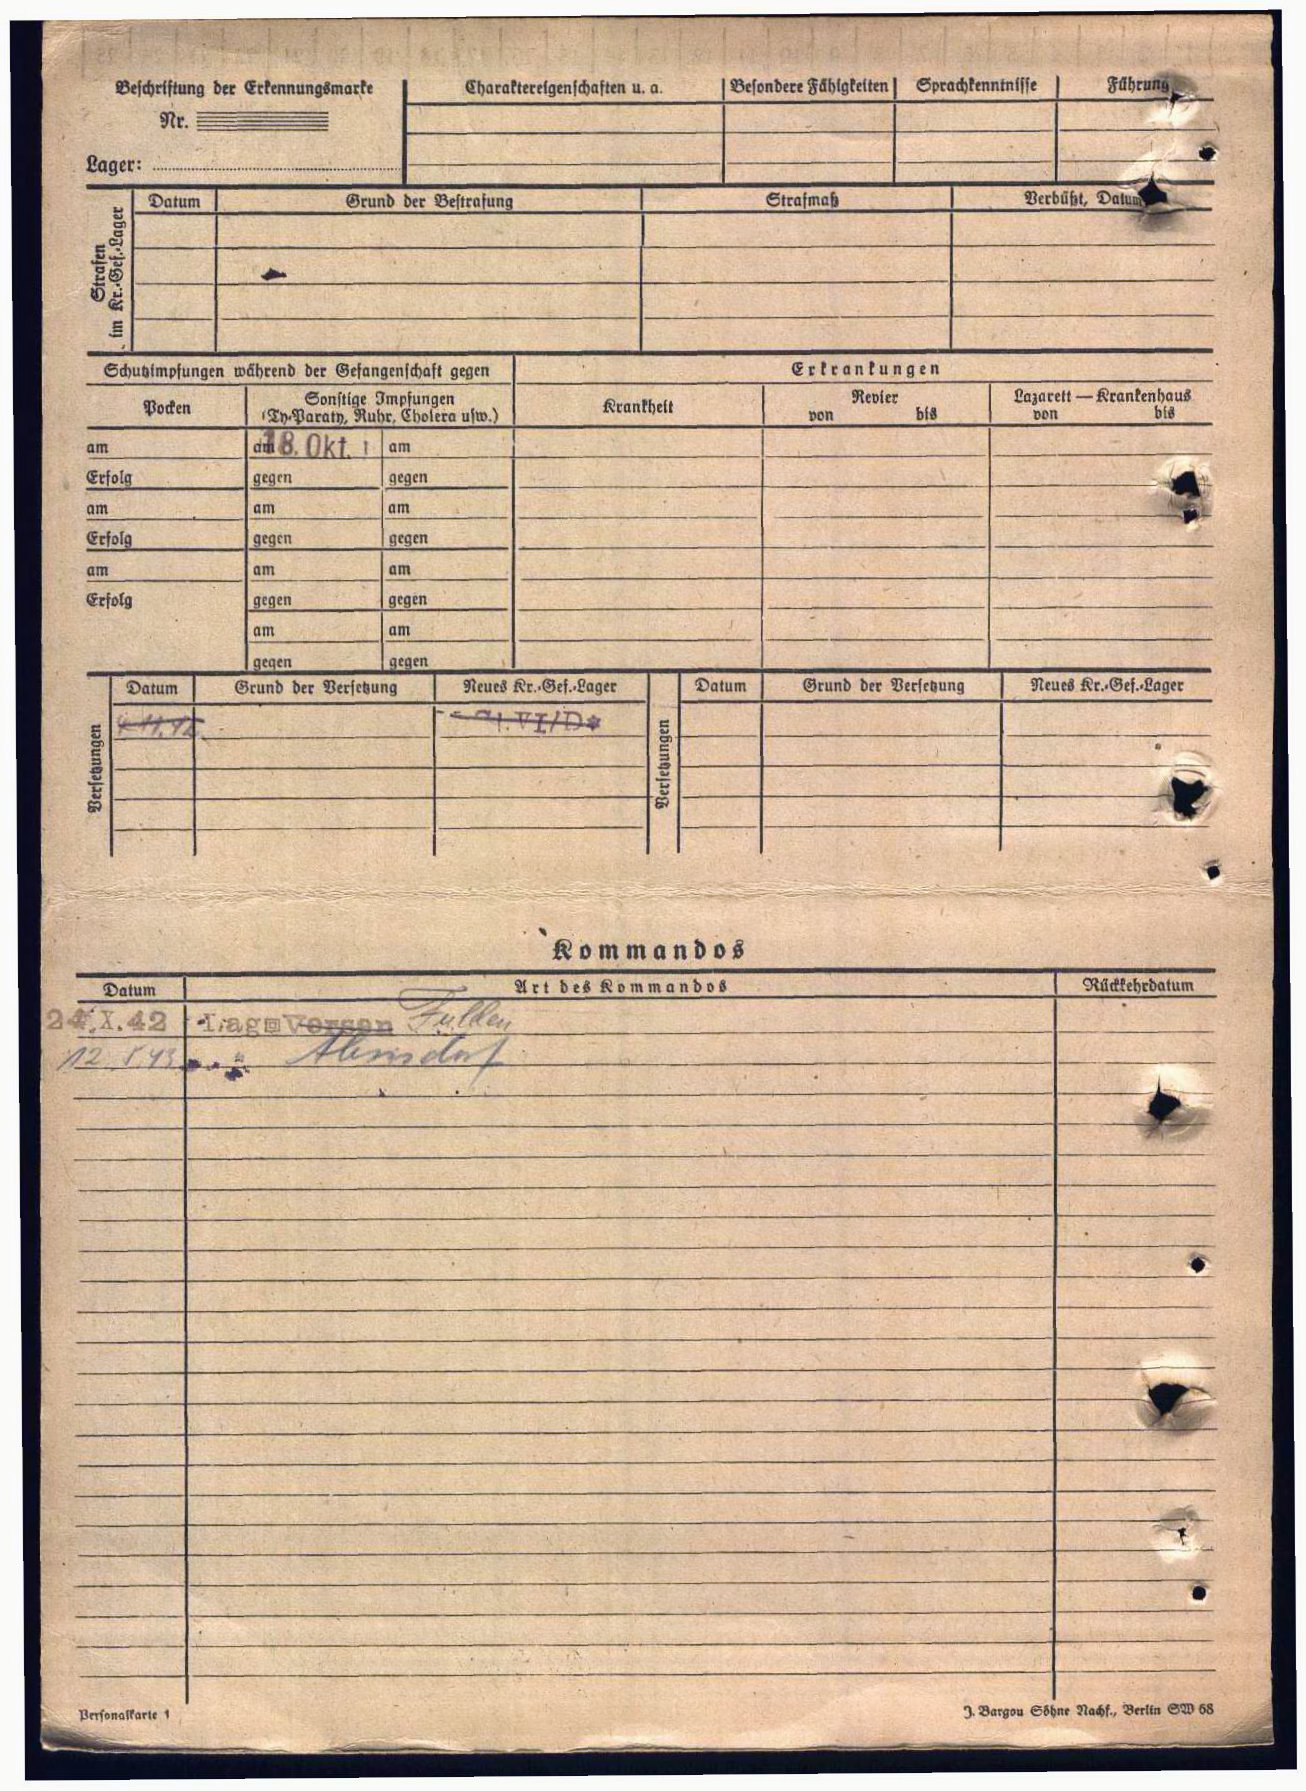 Beschriftung der Erkennungsmarke
Nr.
Lager:
Charaktereigenschaften u. a.
Besondere Fähigkeiten
Sprachkenntnisse
Führung
Strafen
im Kr.-Gef.-Lager
Datum
Grund der Bestrafung
Strafmaß
Verbüßt, Datum
Schutzimpfungen während der Gefangenschaft gegen
Erkrankungen
Pocken
Sonstige Impfungen
(Ty-Paraty, Ruhr, Cholera usw.)
Krankheit
Revier
von bis
Lazarett — Krankenhaus
von bis
am am 18. Okt. am
Erfolg gegen gegen
am am am
Erfolg gegen gegen
am am am
Erfolg gegen gegen
am am
gegen gegen
Versetzungen
Datum Grund der Versetzung Neues Kr.-Gef.-Lager
11.42 VI/D
Versetzungen
Datum Grund der Versetzung Neues Kr.-Gef.-Lager
Kommandos
Datum Art des Kommandos Rückkehrdatum
24.X.42 Lager Versen Fullen
12. 5.43 " Alensdorf
Personalkarte 1
J. Bargou Söhne Nachf., Berlin SW 68